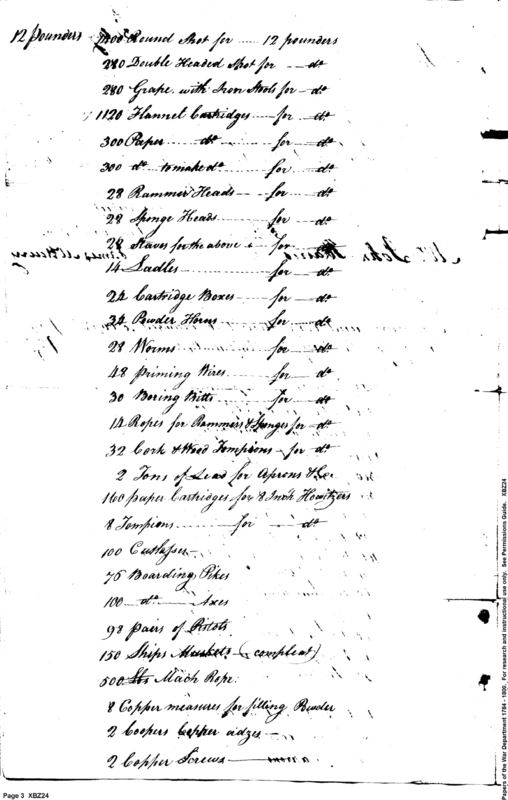 12 Pounders 1400 Round Shot for 12 pounders
280 Double Headed Shot for do
280 Grape with Iron Stools for do
1120 Flannel Cartridges for do
300 Paper do for do
300 do to make do for do
28 Rammer Heads for do
28 Sponge Heads for do
28 Staves for the above for
Mr. John
14 Ladles for do
24 Cartridge Boxes for do
34 Powder Horns for do
28 Worms for do
48 Priming Wires for do
30 Boring Bitts for do
14 Ropes for Rammers & Sponges for do
32 Cork & Wood Tompions for do
2 Tons of Lead for Aprons &c
160 paper Cartridges for 8 Inch Howitzers
8 Tompions for do
100 Cutlasses
76 Boarding Pikes
100 do Axes
98 pairs of Pistols
150 Ships Muskets (compleat)
500 lbs Mach Rope
8 Copper measures for filling Powder
2 Coopers Copper adzes
2 Copper Screws
Page 3 XBZ24
Papers of the War Department 1784 - 1800. For research and instructional use only. See Permissions Guide. XBZ24